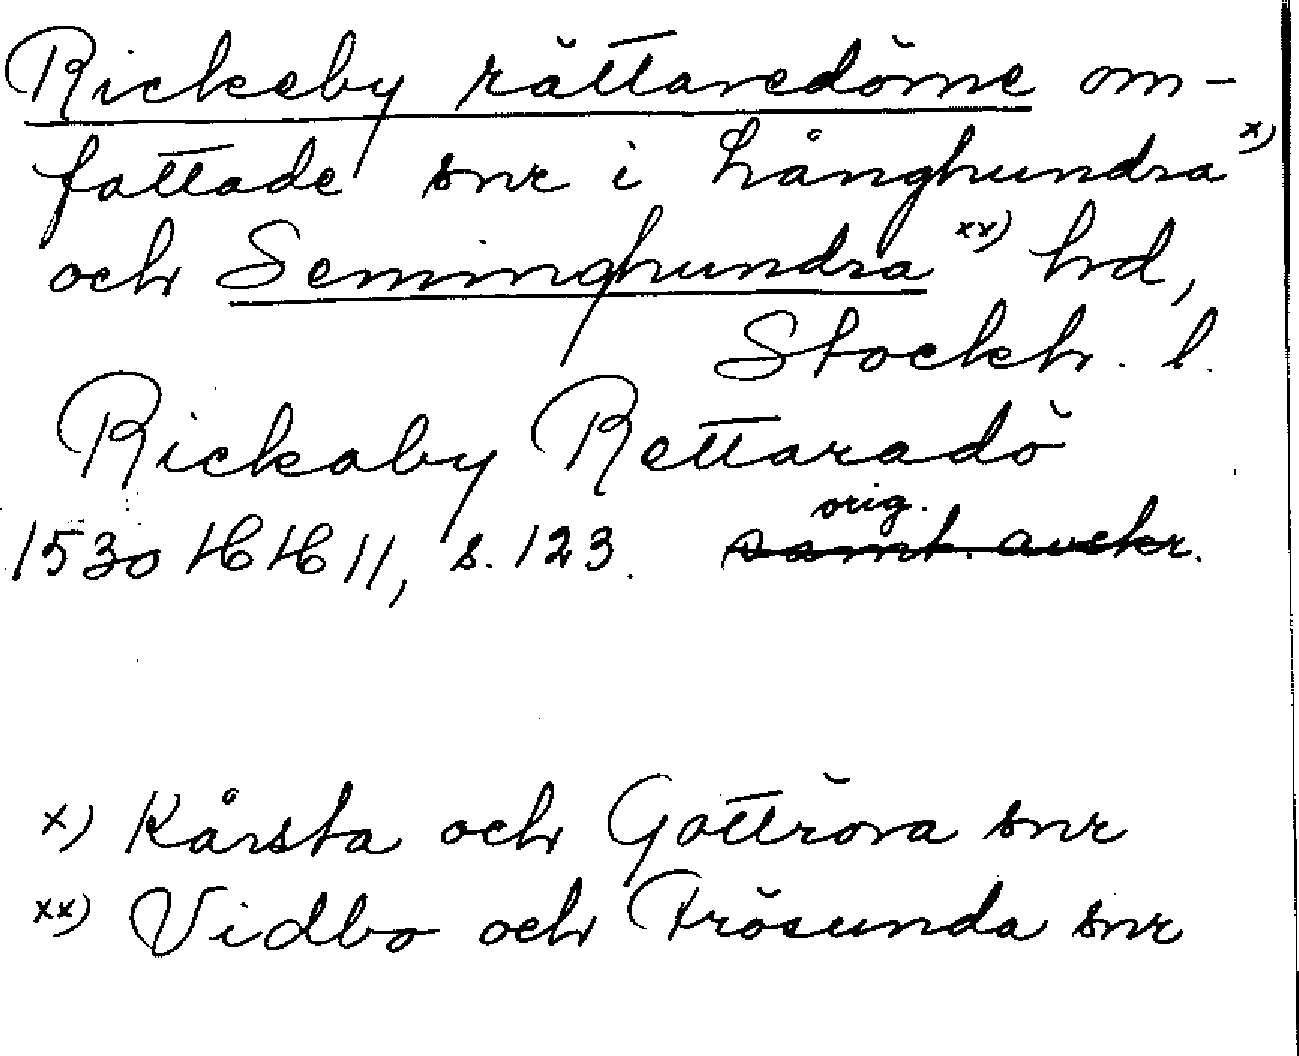 Rickeby rättaredöme om-
fattade snr i Långhundra x)
och Seminghundra xx) hd,
Stockh. l.
Rickaby Rettaradö
orig.
1530 HH 11, s. 123. samt. avskr.
x) Kårsta och Gottröra snr
xx) Vidbo och Frösunda snr